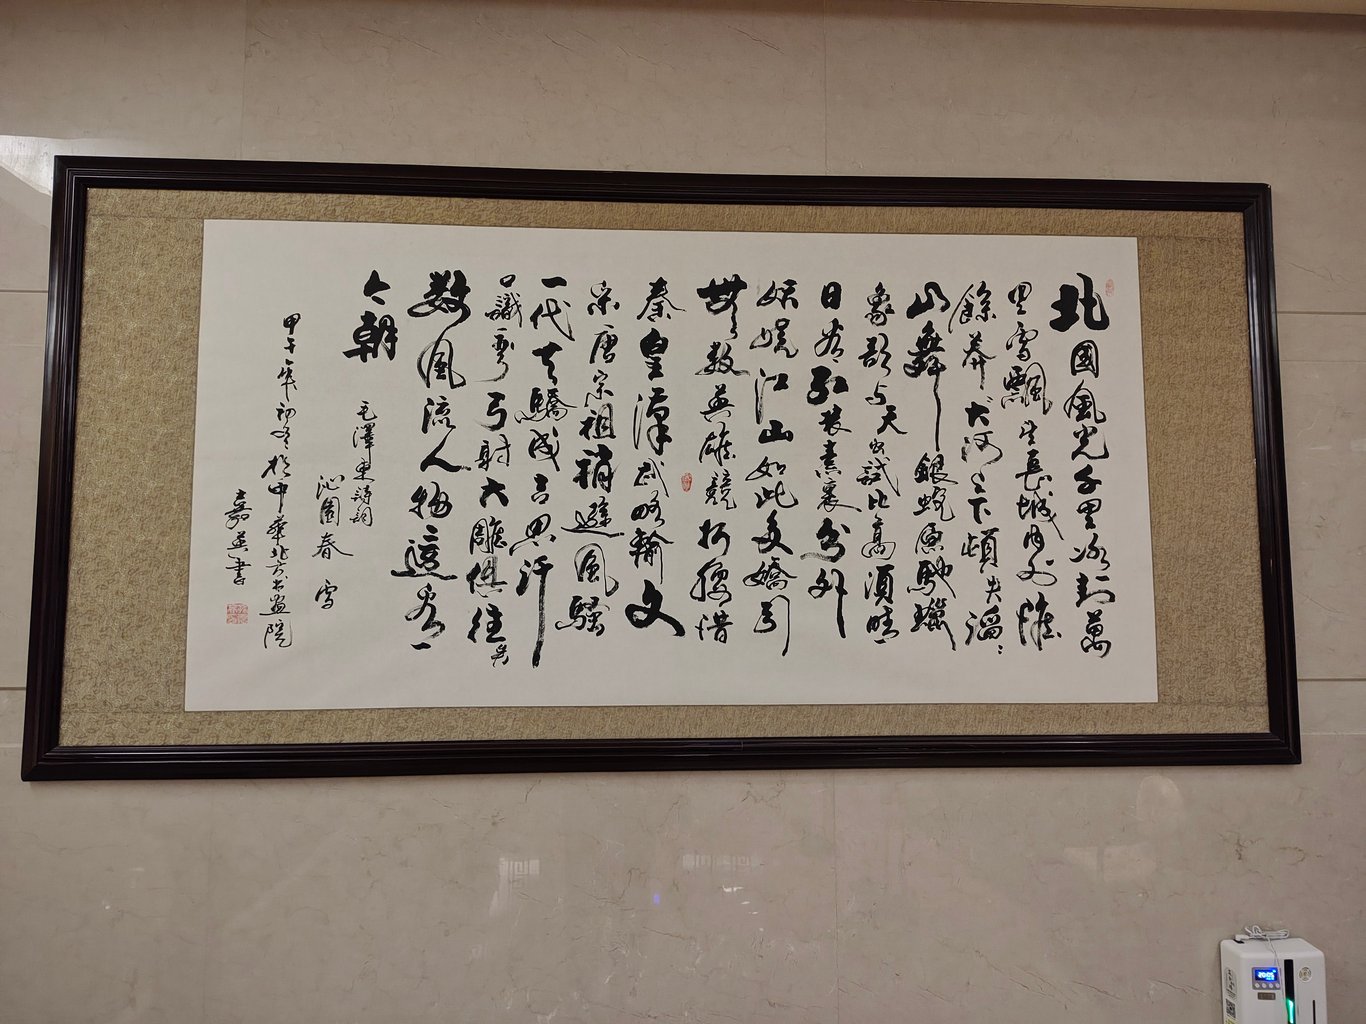 北國風光千里冰封萬
里雪飄望長城内外惟
餘莽大河上下頓失滔〻
山舞銀蛇原馳蠟
象欲与天公試比高須晴
日看紅裝素裹分外
妖嬈江山如此多嬌引
無數英雄競折腰惜
秦皇漢武略輸文
采唐宗祖稍遜風騷
一代天驕成吉思汗
只識彎弓射大雕俱往矣
數風流人物還看
今朝
毛澤東詩詞
沁園春 雪
甲午年初冬於中華北方書畫院
嘉英書
20:05